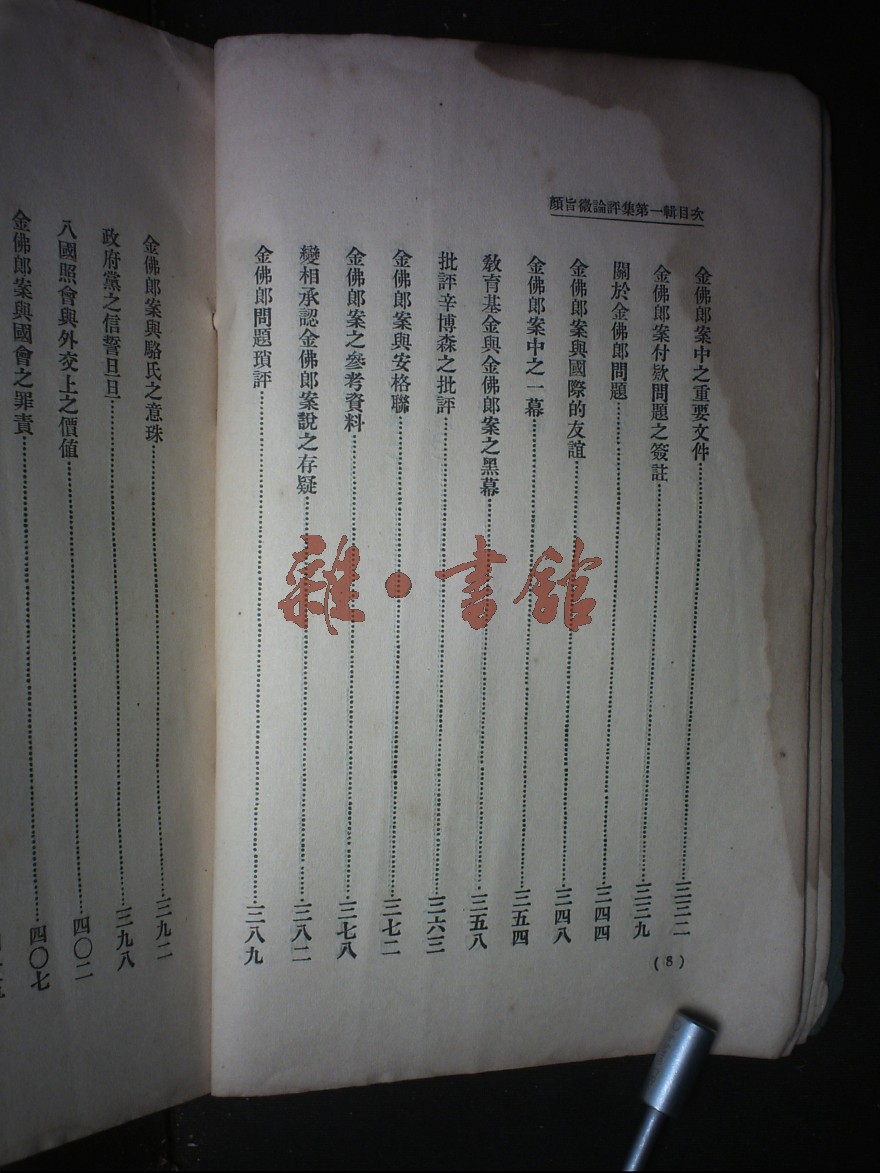 顏旨微論評集第一輯目次
金佛郎案中之重要文件⋯⋯三三二
金佛郎案付欵問題之簽註⋯⋯三三九
關於金佛郎問題⋯⋯三四四
金佛郎案與國際的友誼⋯⋯三四八
金佛郎案中之一幕⋯⋯三五四
敎育基金與金佛郎案之黑幕⋯⋯三五八
批評辛博森之批評⋯⋯三六三
金佛郎案與安格聯⋯⋯三七二
金佛郎案之參考資料⋯⋯三七八
變相承認金佛郎案說之存疑⋯⋯三八二
金佛郎問題瑣評⋯⋯三八九
(8)
金佛郎案與駱氏之意珠⋯⋯三九二
政府黨之信誓旦旦⋯⋯三九八
八國照會與外交上之價値⋯⋯四〇二
金佛郎案與國會之罪責⋯⋯四〇七
雜·書館